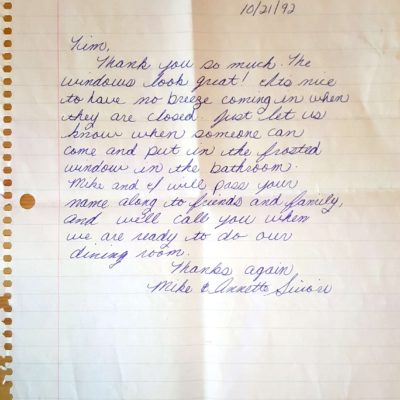 10/21/92
Tim,
Thank you so much. The
windows look great! Its nice
to have no breeze coming in when
they are closed. Just let us
know when someone can
come and put in the frosted
window in the bathroom.
Mike and I will pass your
name along to friends and family,
and we'll call you when
we are ready to do our
dining room.
Thanks again
Mike & Annette